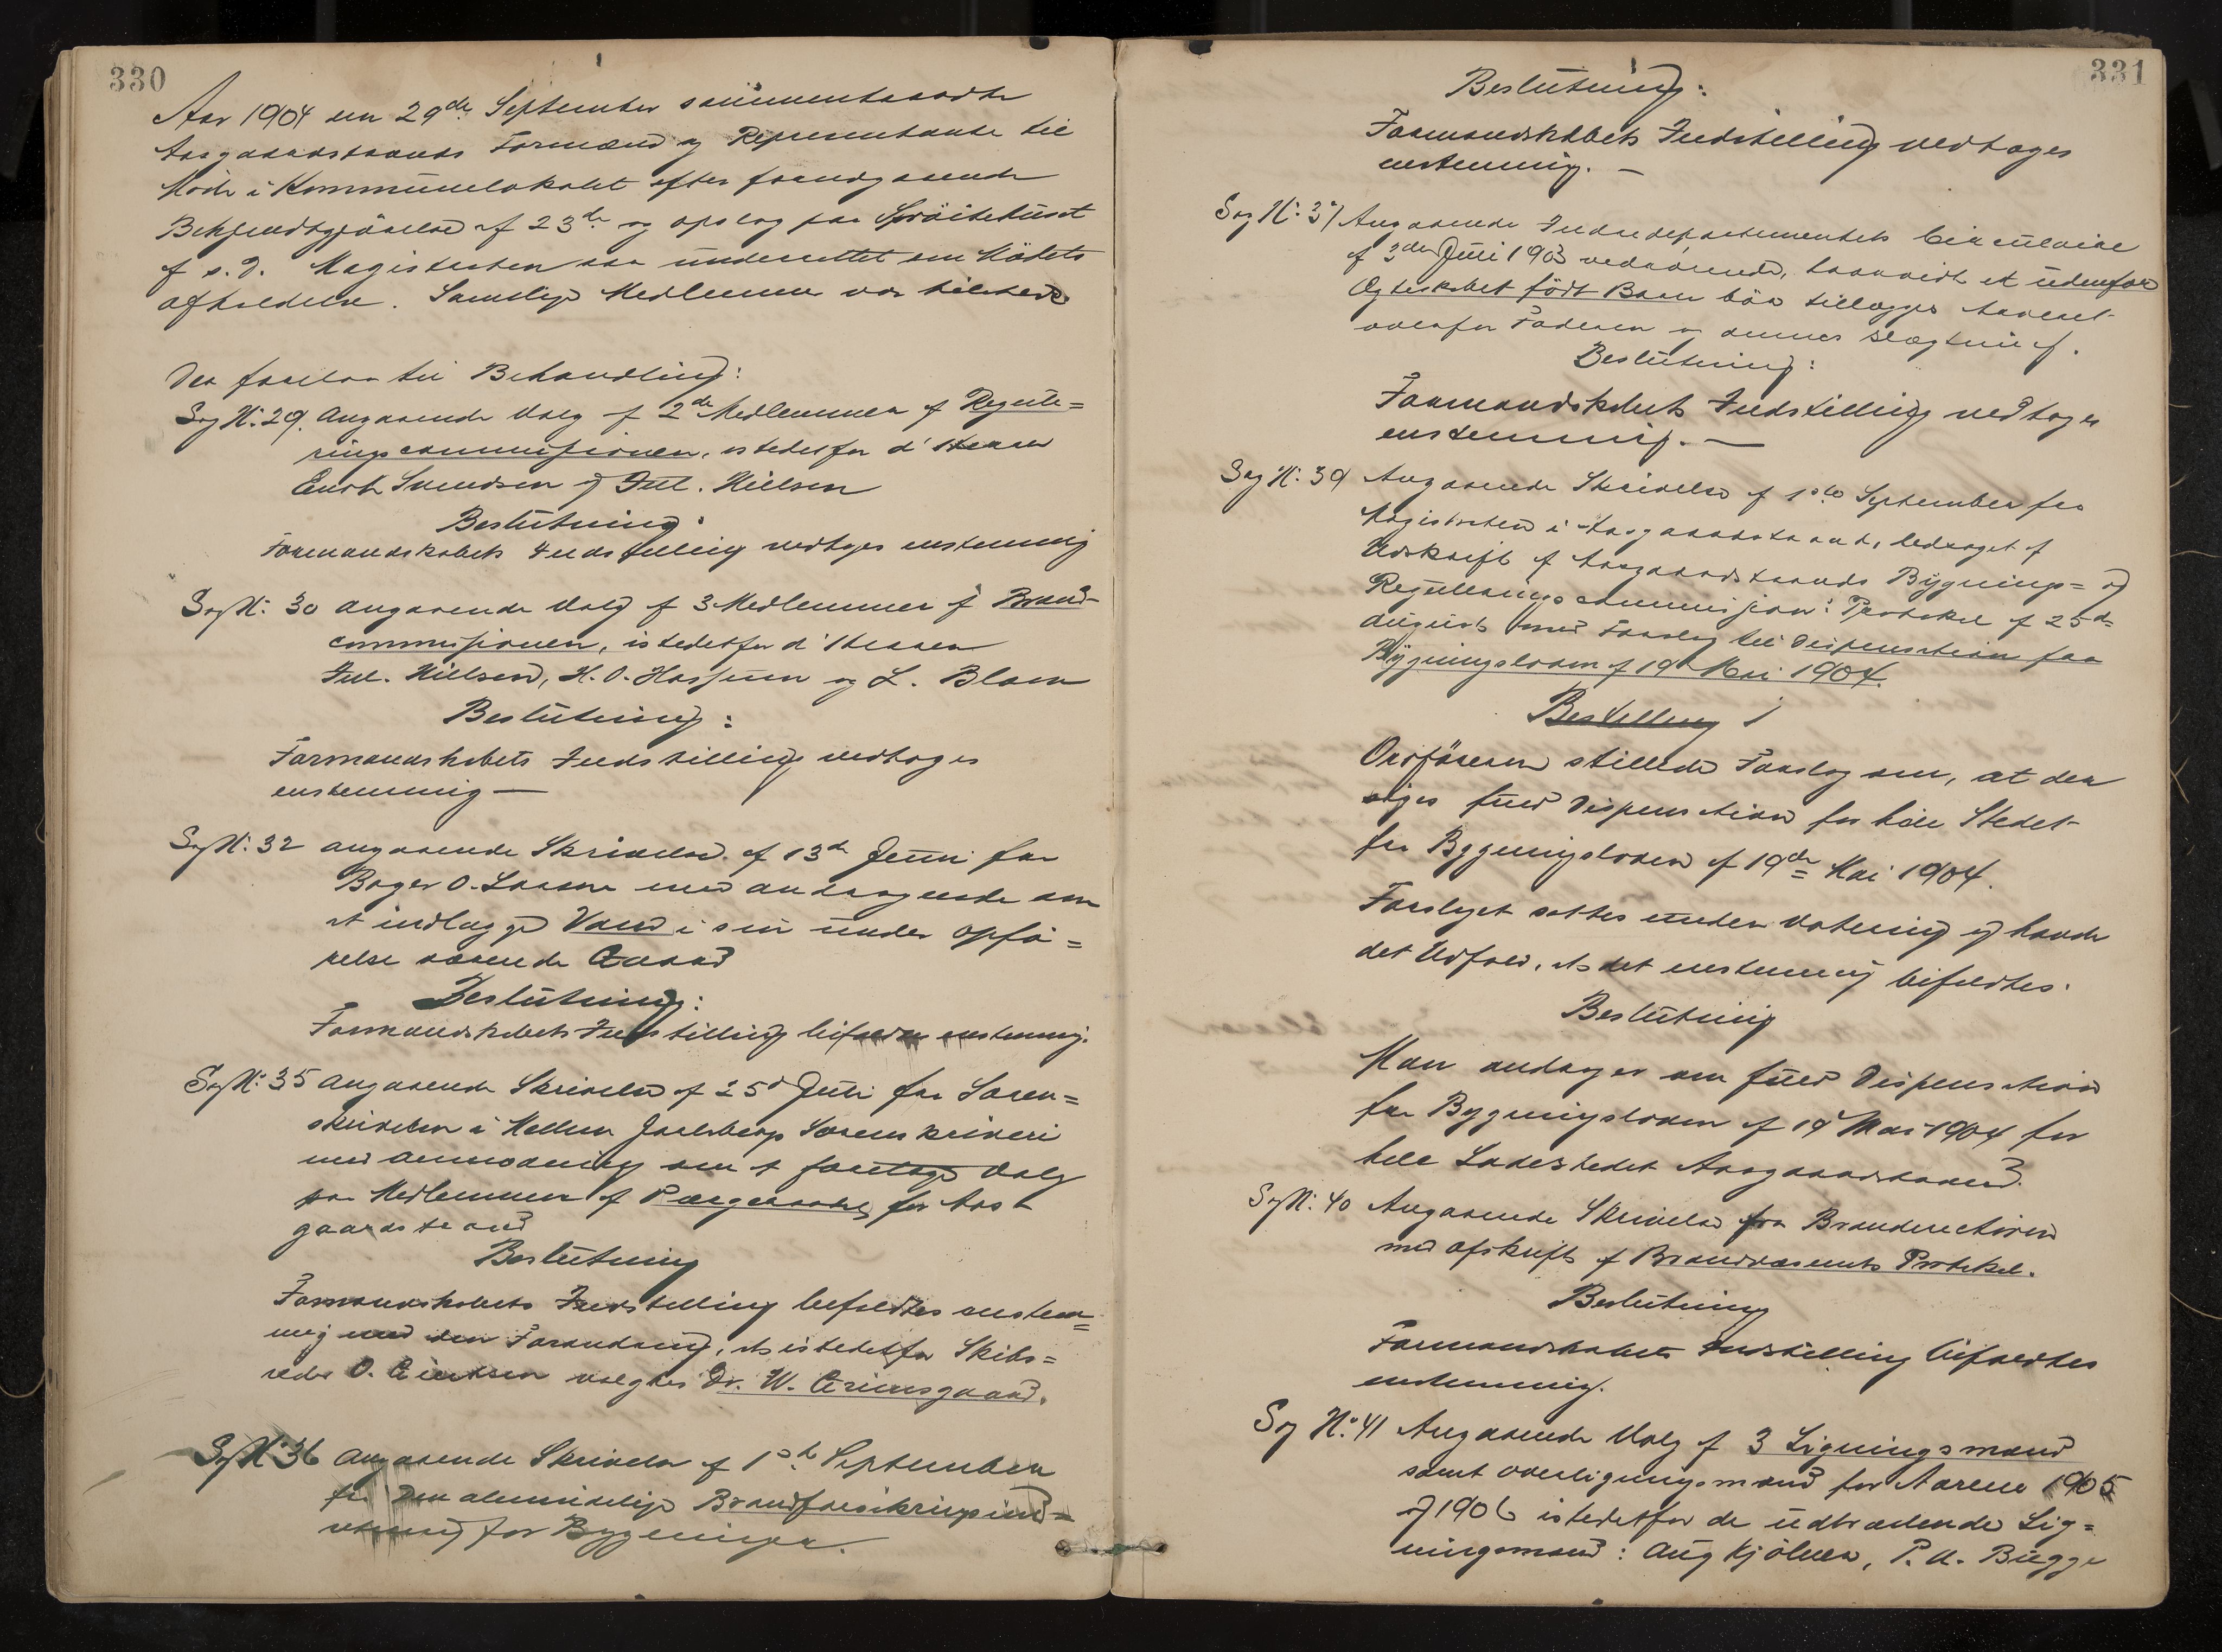 330
Aar 1904 den 29de September sammentraadte
Aasgaardstrands Formænd og Representante til
Möde i Kommunelokalet efter foregaaende
Bekjendtgjörelse af 23de og opslag paa Spröitehuset
f. s. D. Magistraten var underrettet om Mödets
afholdelse. Samtlige Medlemmer var tilstede
Der forelaa til Behandling:
Sag N: 29. Angaaende Valg af 2de Medlemmer af Regule=
ringscommissionen, istedetfor d'Herrer
Svendsen og Jul. Nielsen
Beslutning:
Formandskabets Indstilling vedtages enstemmig
Sag N: 30 Angaaende Valg af 3 Medlemmer af Brand-
commissionen, istedetfor d'Herrer
Jul. Nielsen, H. O. Hassum og L. Blom
Beslutning:
Formandskabets Indstilling vedtages
enstemmig —
Sag N: 32 angaaende Skrivelse af 13de Juni fra
Bager O. Larsen med andragende om
at indlægge Vand i sin under opfö=
relse værende Gaard
Beslutning:
Formandskabets Indstilling bifaldtes enstemmig.
Sag N: 35 Angaaende Skrivelse af 25d Juli fra Soren=
skriveren i Mellem Jarlsbergs Sorenskriveri
med Anmodning om at foretage Valg
paa Medlemmer af Værgeraadet for Aas-
gaardstrand
Beslutning
Formandskabets Indstilling bifaldtes enstem=
mig med den Forandring, at istedetfor Skibs=
reder O. valgtes Dr. W. Grimsgaard.
Sag N: 36 Angaaende Skrivelse af 1ste September
fra Den almindelige Brandforsikringsind=
retning for Bygninger.
331
Beslutning:
Formandskabets Indstilling vedtages
enstemmig. —
Sag N: 37 Angaaende Indredepartementets Circulaire
af 3de Juli 1903 vedrörende, hvorvidt et udenfor
Ægteskabet födt Barn bör tillægges Arveret
overfor Faderen og dennes Slægtning.
Beslutning:
Formandskabets Indstilling vedtages
enstemmig. —
Sag N: 39 Angaaende Skrivelse af 1ste September fra
Magistraten i Aasgaardstrand, ledsaget af
Udskrift af Aasgaardstrands Bygnings= og
Reguleringscommissions Protokol af 25de
August med Forslag til Dispensation fra
Bygningsloven af 19 Mai 1904.
Bestilling
Ordföreren stillede Forslag om, at der
söges fuld Dispensation for hele Stedet
fra Bygningsloven af 19de Mai 1904.
Forslaget sattes under Votering og havde
det Udfald, at det enstemmig bifaldtes.
Beslutning
Man andrager om fuld Dispensation
fra Bygningsloven af 19 Mai 1904 for
hele Ladestedet Aasgaardstrand.
Sag N: 40 Angaaende Skrivelse fra Branddirectören
med afskrift af Brandvæsenets Protokol.
Beslutning
Formandskabets Indstilling bifaldtes
enstemmig.
Sag N: 41 Angaaende Valg af 3 Ligningsmænd
samt overligningsmænd for Aarene 1905
og 1906 istedetfor de udtrædende Lig=
ningsmænd: Aug Kjölner, P. A. Bugge